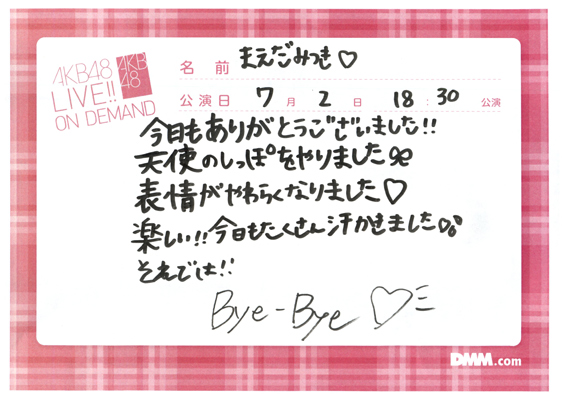 AKB48
LIVE!!
ON DEMAND
AKB
48
名前 まえだみつき♡
公演日 7月2日 18:30 公演
今日もありがとうございました!!
天使のしっぽをやりました
表情がやわらくなりました♡
楽しい!!今日もたくさん汗かきました
それでは!!
Bye-Bye ♡
DMM.com